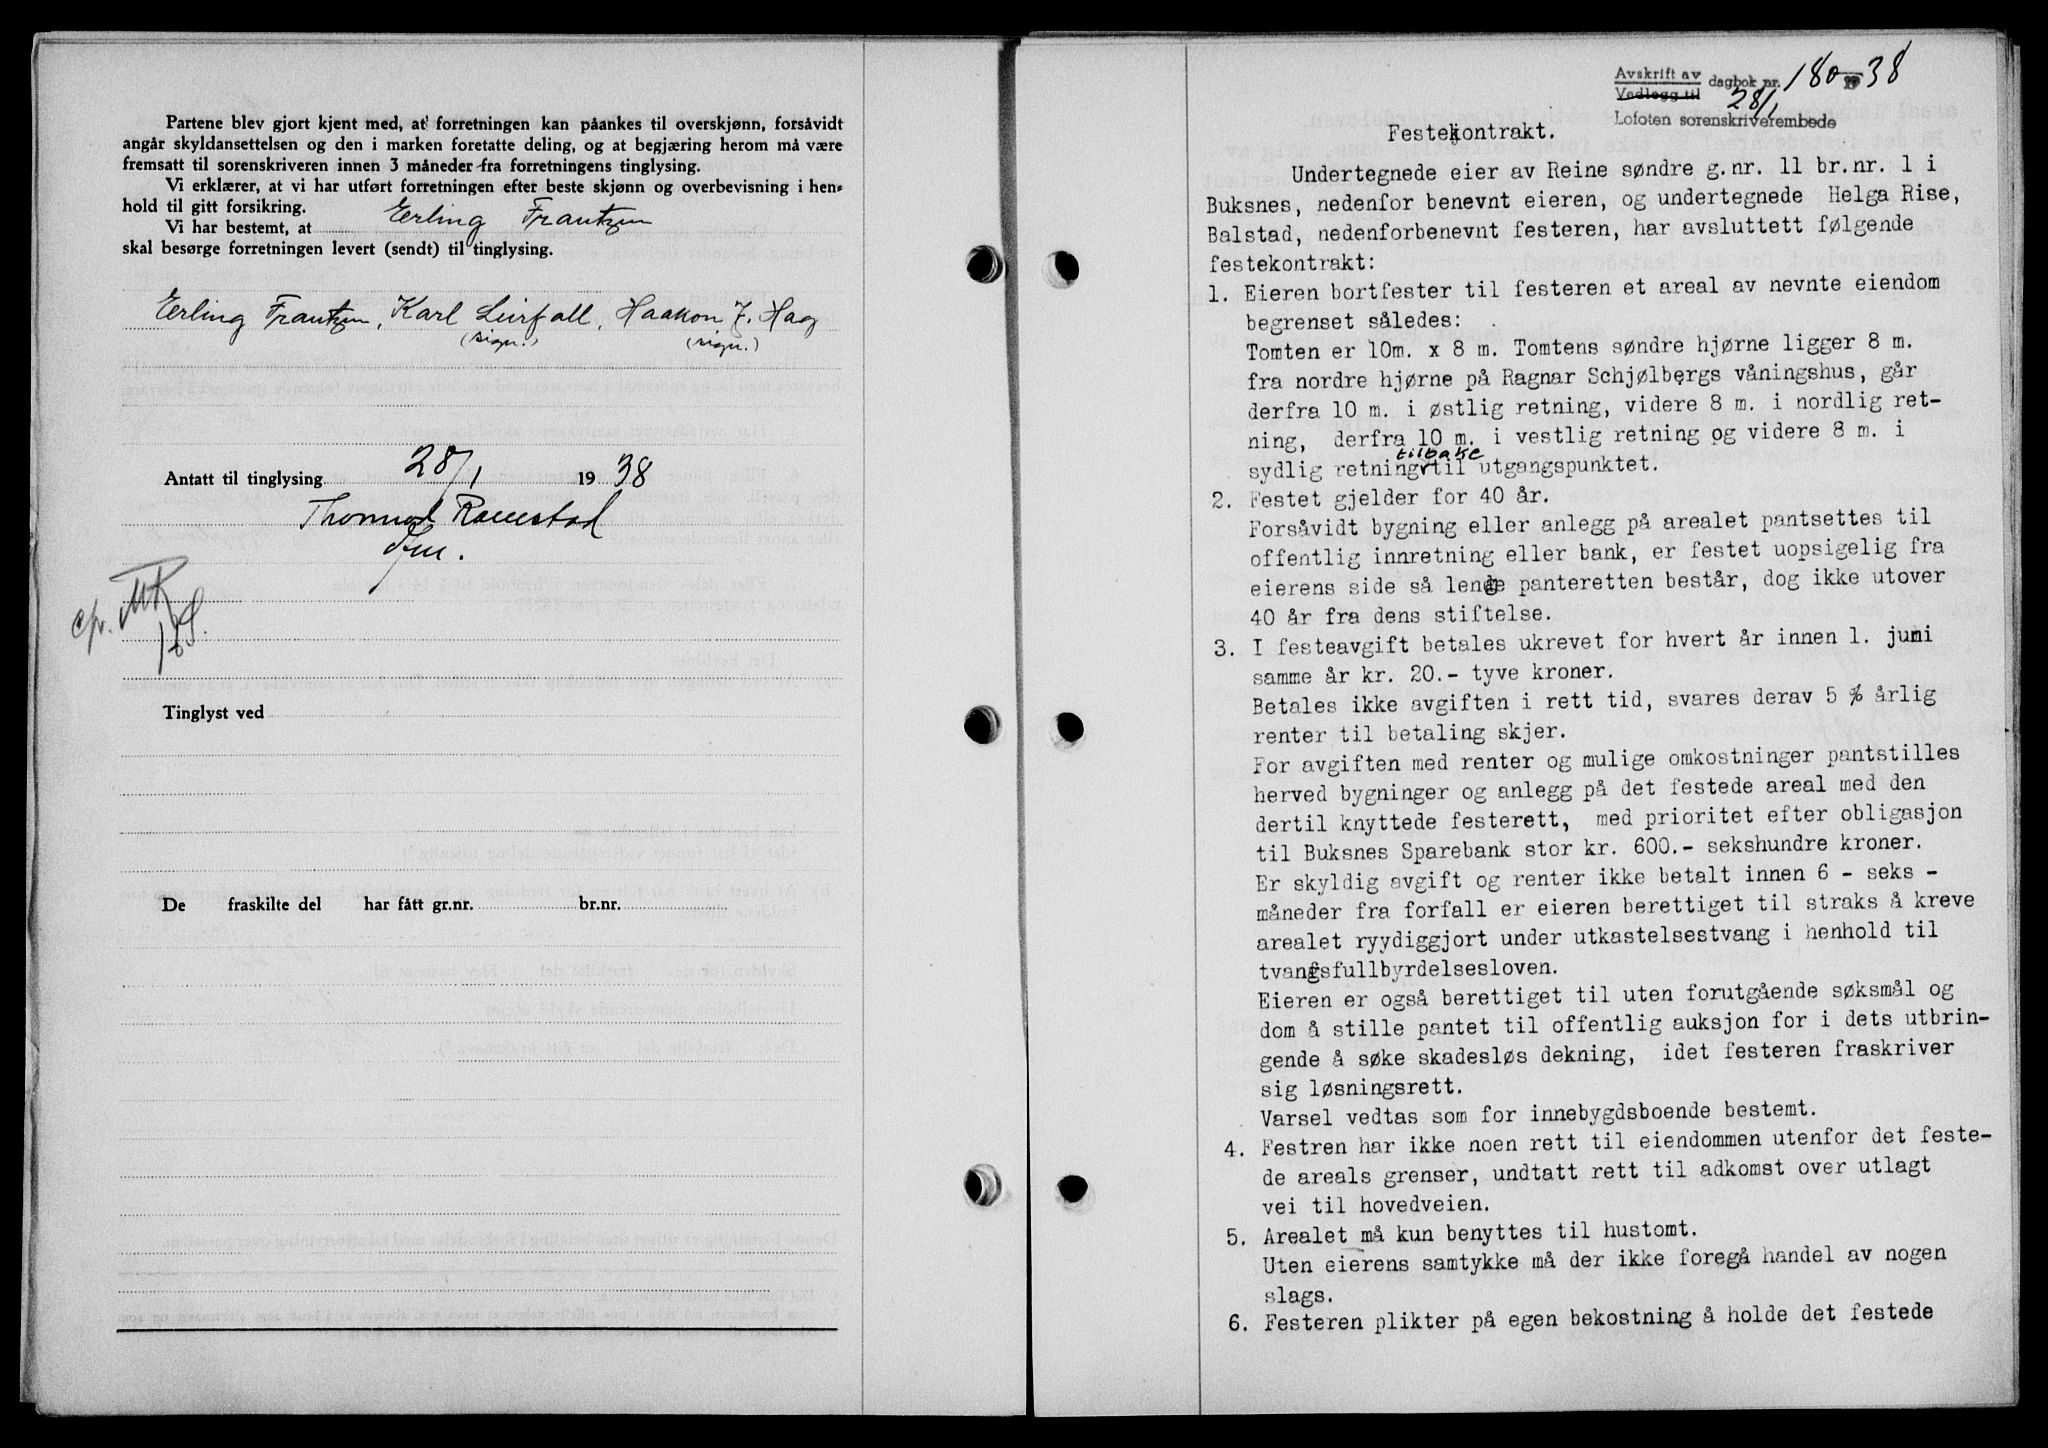 Partene blev gjort kjent med, at forretningen kan påankes til overskjønn, forsåvidt
angår skyldansettelsen og den i marken foretatte deling, og at begjæring herom må være
fremsatt til sorenskriveren innen 3 måneder fra forretningens tinglysing.
Vi erklærer, at vi har utført forretningen efter beste skjønn og overbevisning i hen-
hold til gitt forsikring.
Vi har bestemt, at Erling Frantzen
skal besørge forretningen levert (sendt) til tinglysing.
Erling Frantzen, Karl Leirfall, Haakon J. Hag
(sign.) (sign.)
Antatt til tinglysing 28/1 1938
Thormod Ramstad
fm.
Tinglyst ved
De fraskilte del har fått gr.nr. br.nr.
Avskrift av dagbok nr. 180 - 1938
Vedlegg til 28/1
Lofoten sorenskriverembede
Festekontrakt.
Undertegnede eier av Reine søndre g.nr. 11 br.nr. 1 i
Buksnes, nedenfor benevnt eieren, og undertegnede Helga Rise,
Balstad, nedenforbenevnt festeren, har avsluttett følgende
festekontrakt:
1. Eieren bortfester til festeren et areal av nevnte eiendom
begrenset således:
Tomten er 10m. x 8 m. Tomtens søndre hjørne ligger 8 m.
fra nordre hjørne på Ragnar Schjølbergs våningshus, går
derfra 10 m. i østlig retning, videre 8 m. i nordlig ret-
ning, derfra 10 m. i vestlig retning og videre 8 m. i
sydlig retning tilbake til utgangspunktet.
2. Festet gjelder for 40 år.
Forsåvidt bygning eller anlegg på arealet pantsettes til
offentlig innretning eller bank, er festet uopsigelig fra
eierens side så lenge panteretten består, dog ikke utover
40 år fra dens stiftelse.
3. I festeavgift betales ukrevet for hvert år innen 1. juni
samme år kr. 20.- tyve kroner.
Betales ikke avgiften i rett tid, svares derav 5 % årlig
renter til betaling skjer.
For avgiften med renter og mulige omkostninger pantstilles
herved bygninger og anlegg på det festede areal med den
dertil knyttede festerett, med prioritet efter obligasjon
til Buksnes Sparebank stor kr. 600.- sekshundre kroner.
Er skyldig avgift og renter ikke betalt innen 6 - seks -
måneder fra forfall er eieren berettiget til straks å kreve
arealet ryydiggjort under utkastelsestvang i henhold til
tvangsfullbyrdelsesloven.
Eieren er også berettiget til uten forutgående søksmål og
dom å stille pantet til offentlig auksjon for i dets utbrin-
gende å søke skadesløs dekning, idet festeren fraskriver
sig løsningsrett.
Varsel vedtas som for innebygdsboende bestemt.
4. Festren har ikke noen rett til eiendommen utenfor det feste-
de areals grenser, undtatt rett til adkomst over utlagt
vei til hovedveien.
5. Arealet må kun benyttes til hustomt.
Uten eierens samtykke må der ikke foregå handel av nogen
slags.
6. Festeren plikter på egen bekostning å holde det festede